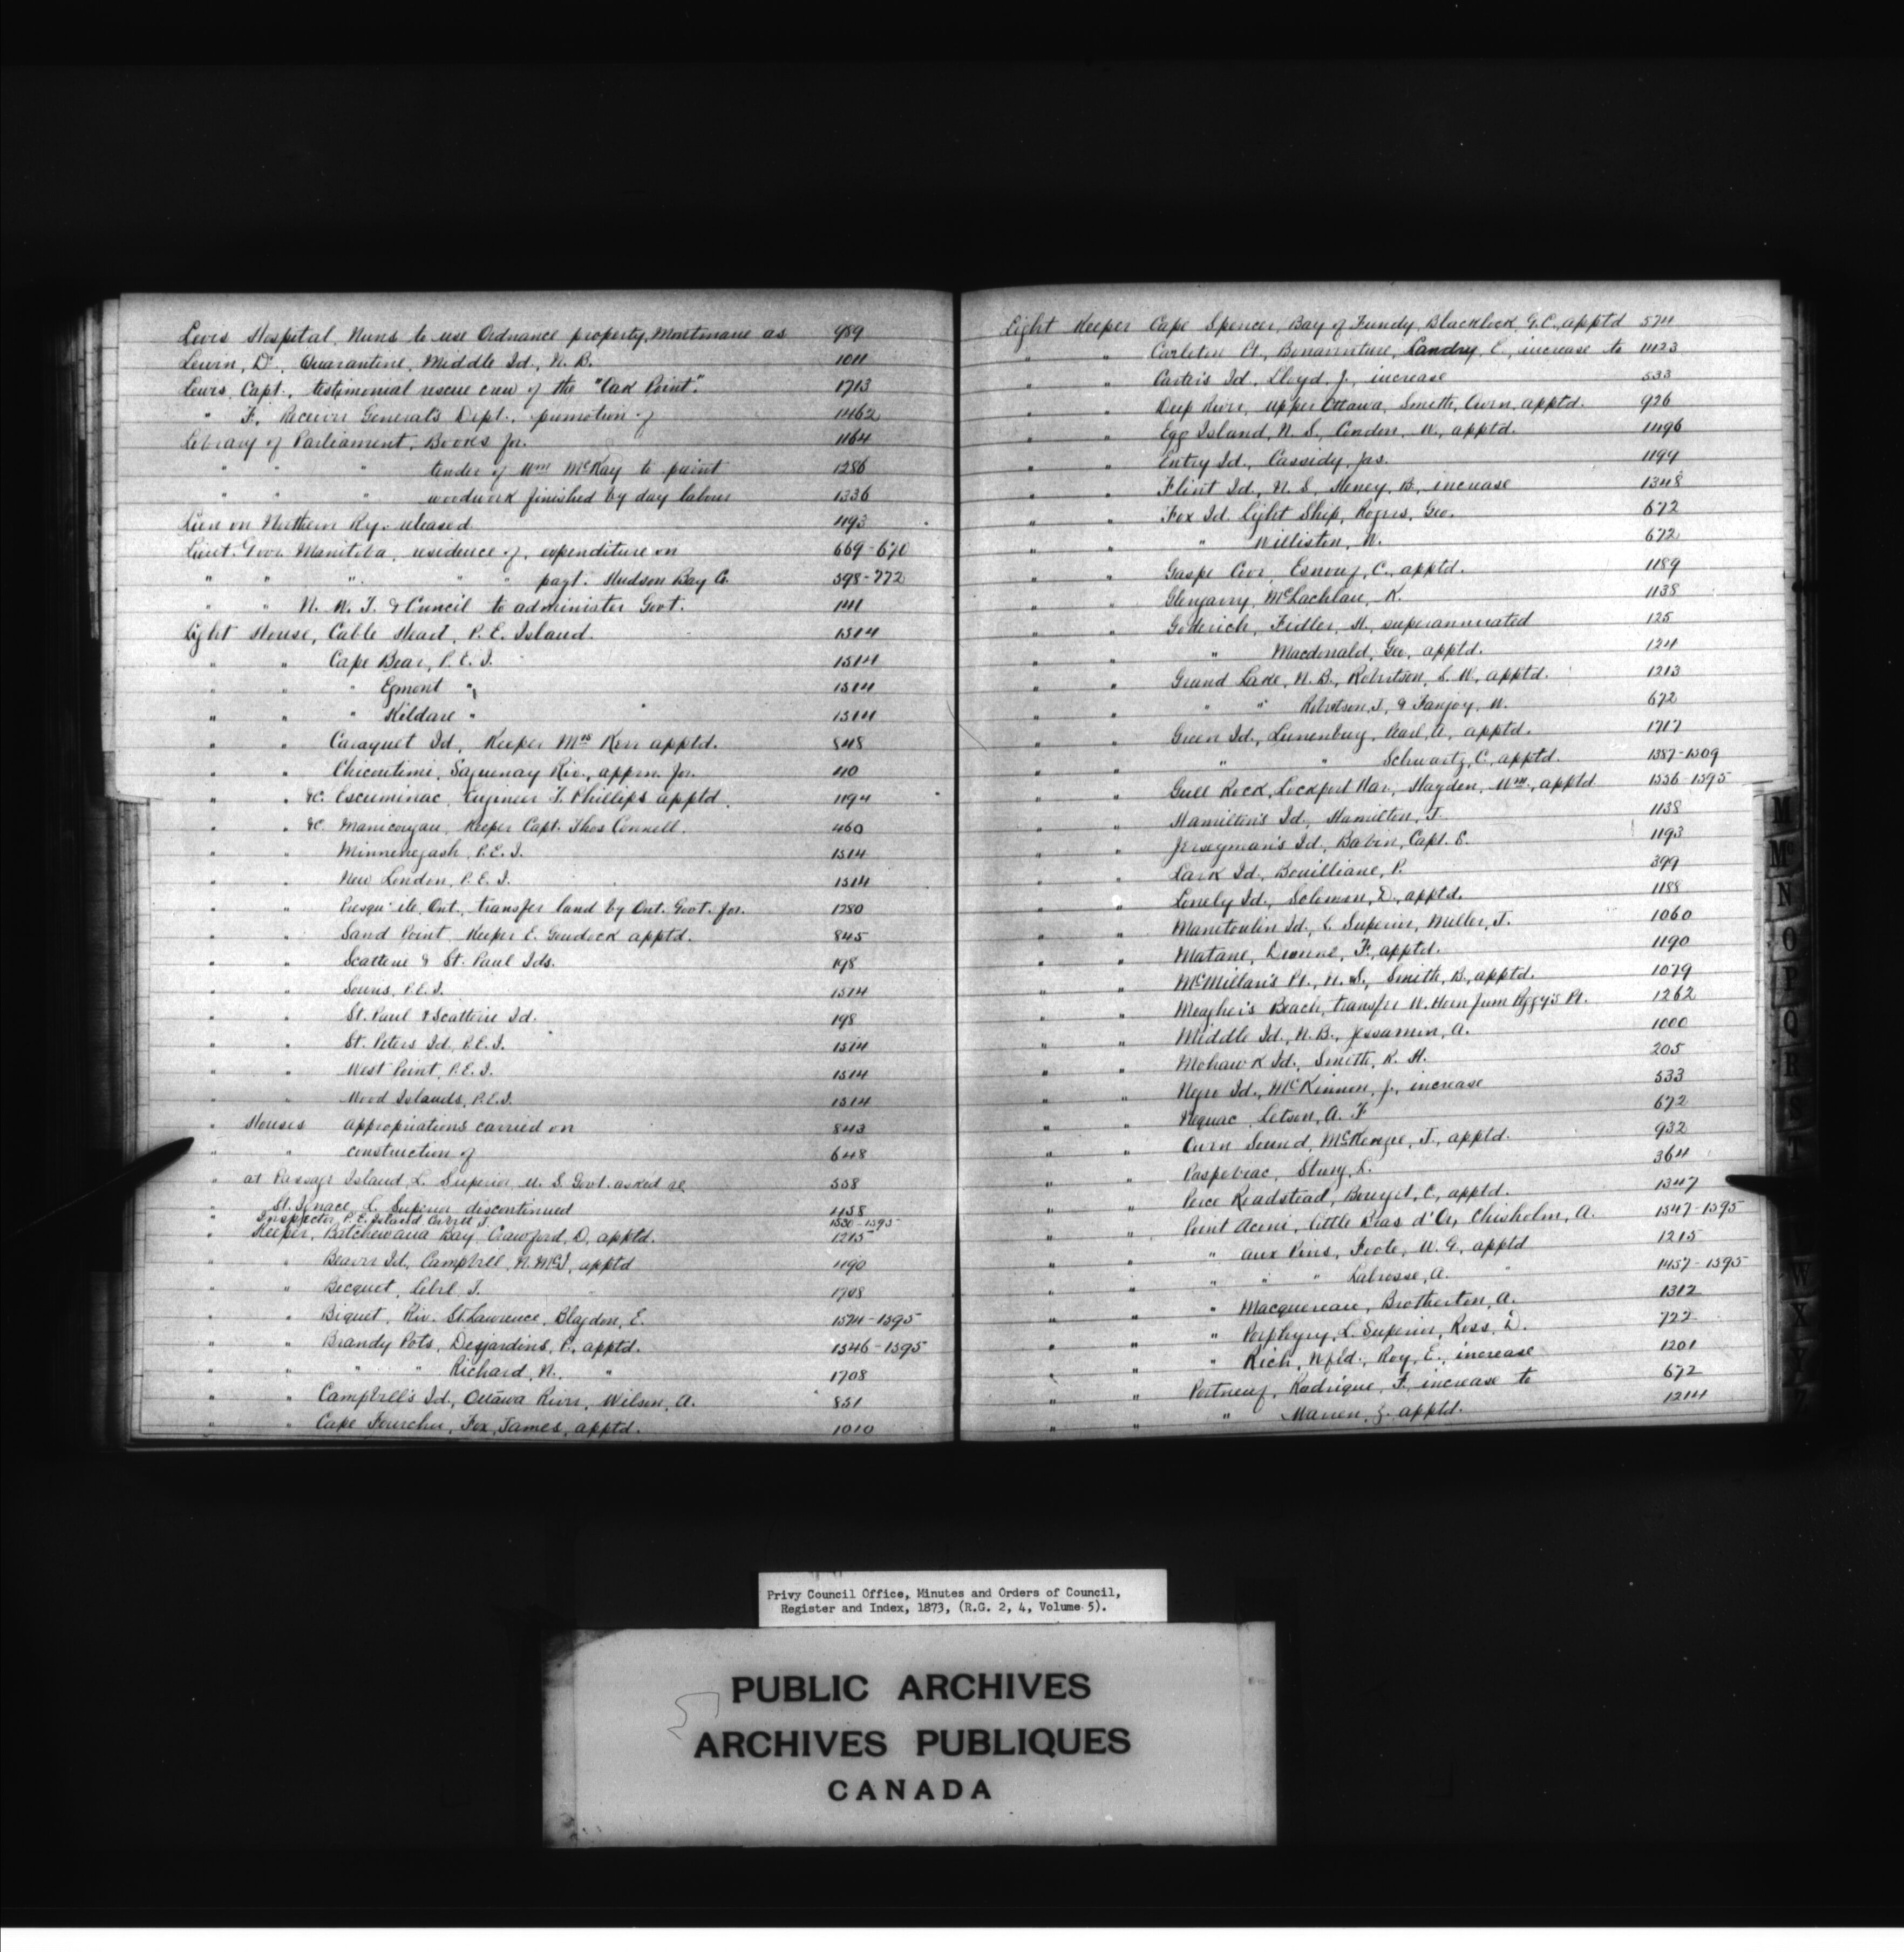 Levis Hospital, Nuns to use Ordnance property, Montmarie as 989
Lewin, Dr., Quarantine, Middle Id, N. B. 1011
Lewis, Capt., testimonial rescue crew of the "Oak Point". 1713
" F., Receiver General's Dept., promotion of 1462
Library of Parliament, Books for. 1164
" " " tender of Wm McKay to paint 1286
" " " woodwork finished by day labour 1336
Lien on Northern Ry. released 1193
Lieut. Govr. Manitoba, residence of, expenditure on 669-670
" " " " " payt. Hudson Bay Co. 398-772
" " N. W. T. & Council to administer Govt. 141
Light House, Cable Head, P. E. Island. 1514
" " Cape Bear, P. E. I. 1514
" " " Egmont " 1514
" " " Kildare " 1514
" " Caraquet Id, Keeper Mrs Kerr apptd. 848
" " Chicoutimi, Saguenay Riv., apprn. for. 110
" " &c. Escuminac, Engineer T. Phillips apptd. 1194
" " &c. Manicougan, Keeper Capt. Thos Connell. 460
" " Minnehegash, P. E. I. 1514
" " New London, P. E. I. 1514
" " Presqu'ile, Ont., transfer land by Ont. Govt. for. 1280
" " Sand Point, Keeper E. Goudock apptd. 845
" " Scatterie & St. Paul Ids. 198
" " Souris, P. E. I. 1514
" " St. Paul & Scatterie Id. 198
" " St. Peters Id, P. E. I. 1514
" " West Point, P. E. I. 1514
" " Wood Islands, P. E. I. 1514
" Houses appropriations carried on 843
" " construction of 648
" at Passage Island, L. Superior U. S. Govt. asked re 558
" St. Ignace, L. Superior discontinued 1158
" Inspector, P. E. Island 1550-1595
" Keeper, Batchewana Bay, Crawford, D, apptd. 1215
" " Beaver Id, Campbell, N. McI, apptd 1190
" " Becquet, T. 1708
" " Biquet, Riv. St. Lawrence, Blagdon, E. 1574-1595
" " Brandy Pots, Desjardins, P, apptd. 1546-1595
" " " " Richard, N. " 1708
" " Campbell's Id, Ottawa River, Wilson, A. 851
" " Cape Fourchu, Fox, James, apptd. 1010
Light Keeper Cape Spencer, Bay of Fundy, Blacklock, G. C., apptd 574
" " Carleton Pt, Bonaventure, Landry, E, increase to 1123
" " Carter's Id, Lloyd, J., increase 533
" " Deep River, upper Ottawa, Smith, Owen, apptd. 926
" " Egg Island, N. S, Condon, W, apptd. 1196
" " Entry Id., Cassidy, Jas. 1199
" " Flint Id, N. S, Heney, B, increase 1348
" " Fox Id. Light Ship, Rogers, Geo. 672
" " " Williston, W. 672
" " Gaspe Cove, Esnouf, C, apptd. 1189
" " Glengarry, McLachlan, K. 1138
" " Goderich, Fidler, H, superannuated 125
" " " Macdonald, Geo, apptd. 124
" " Grand Lake, N. B., Robertson, S. W, apptd. 1213
" " " " Robertson, J, & Fanjoy, W. 672
" " Green Id, Lunenburg, Pearl, A, apptd. 1717
" " " " Schwartz, C, apptd. 1387-1509
" " Gull Rock, Lockport Har, Hayden, Wm, apptd 1556-1595
" " Hamilton's Id, Hamilton, T. 1138
" " Jerseyman's Id, Babin, Capt. E. 1193
" " Lark Id, Bouilliane, P. 399
" " Lonely Id, Solomon, D, apptd. 1188
" " Manitoulin Id, L. Superior, Miller, J. 1060
" " Matane, Dionne, F, apptd. 1190
" " McMillan's Pt, N. S, Smith, B, apptd. 1079
" " Meagher's Beach, transfer W. Horn from Peggy's Pt. 1262
" " Middle Id, N. B., Jessamin, A. 1000
" " Mohawk Id, Smith, R. H. 205
" " Negro Id, McKinnon, J, increase 533
" " Neguac, Letson, A. F 672
" " Owen Sound, McKenzie, J, apptd. 932
" " Paspebiac, L. 364
" " Perce Roadstead, Bourget, C, apptd. 1347
" " Point Aconi, Little Bras d'Or, Chisholm, A. 1547-1595
" " " aux Pins, Foote, W. G, apptd 1215
" " " " " Labrosse, A. " 1457-1595
" " " Macquereau, Brotherton, A. 1312
" " " Porphyry, L. Superior, Ross, D. 722
" " " Rich, Nfld., Roy, E., increase 1201
" " Portneuf, Rodrigue, F, increase to 672
" " " Marien, Z. apptd. 1214
M
Mc
N
O
P
Q
R
S
T
W
X
Y
Z
Privy Council Office, Minutes and Orders of Council,
Register and Index, 1873, (R.G. 2, 4, Volume 5).
PUBLIC ARCHIVES
ARCHIVES PUBLIQUES
CANADA